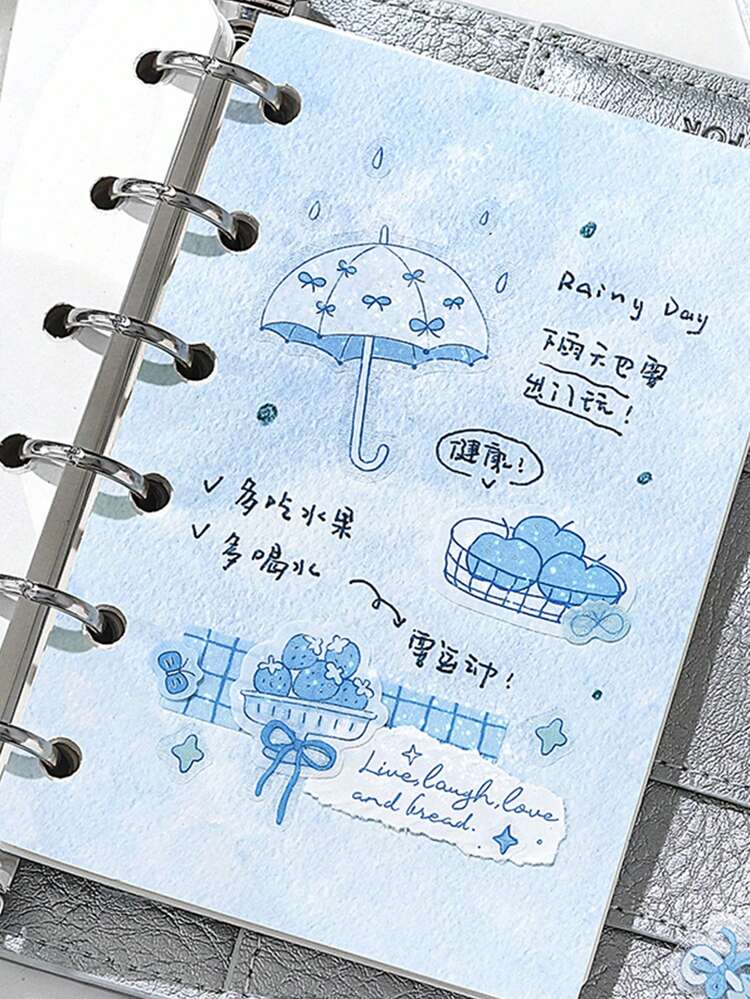 Rainy Day
下雨天也要
出门玩!
健康!
✓ 多吃水果
✓ 多喝水
要运动!
Live, laugh, love
and bread.